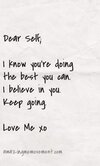 Dear Self,
I know you're doing
the best you can.
I believe in you.
Keep going.
Love Me xo
amazingmemovement.com